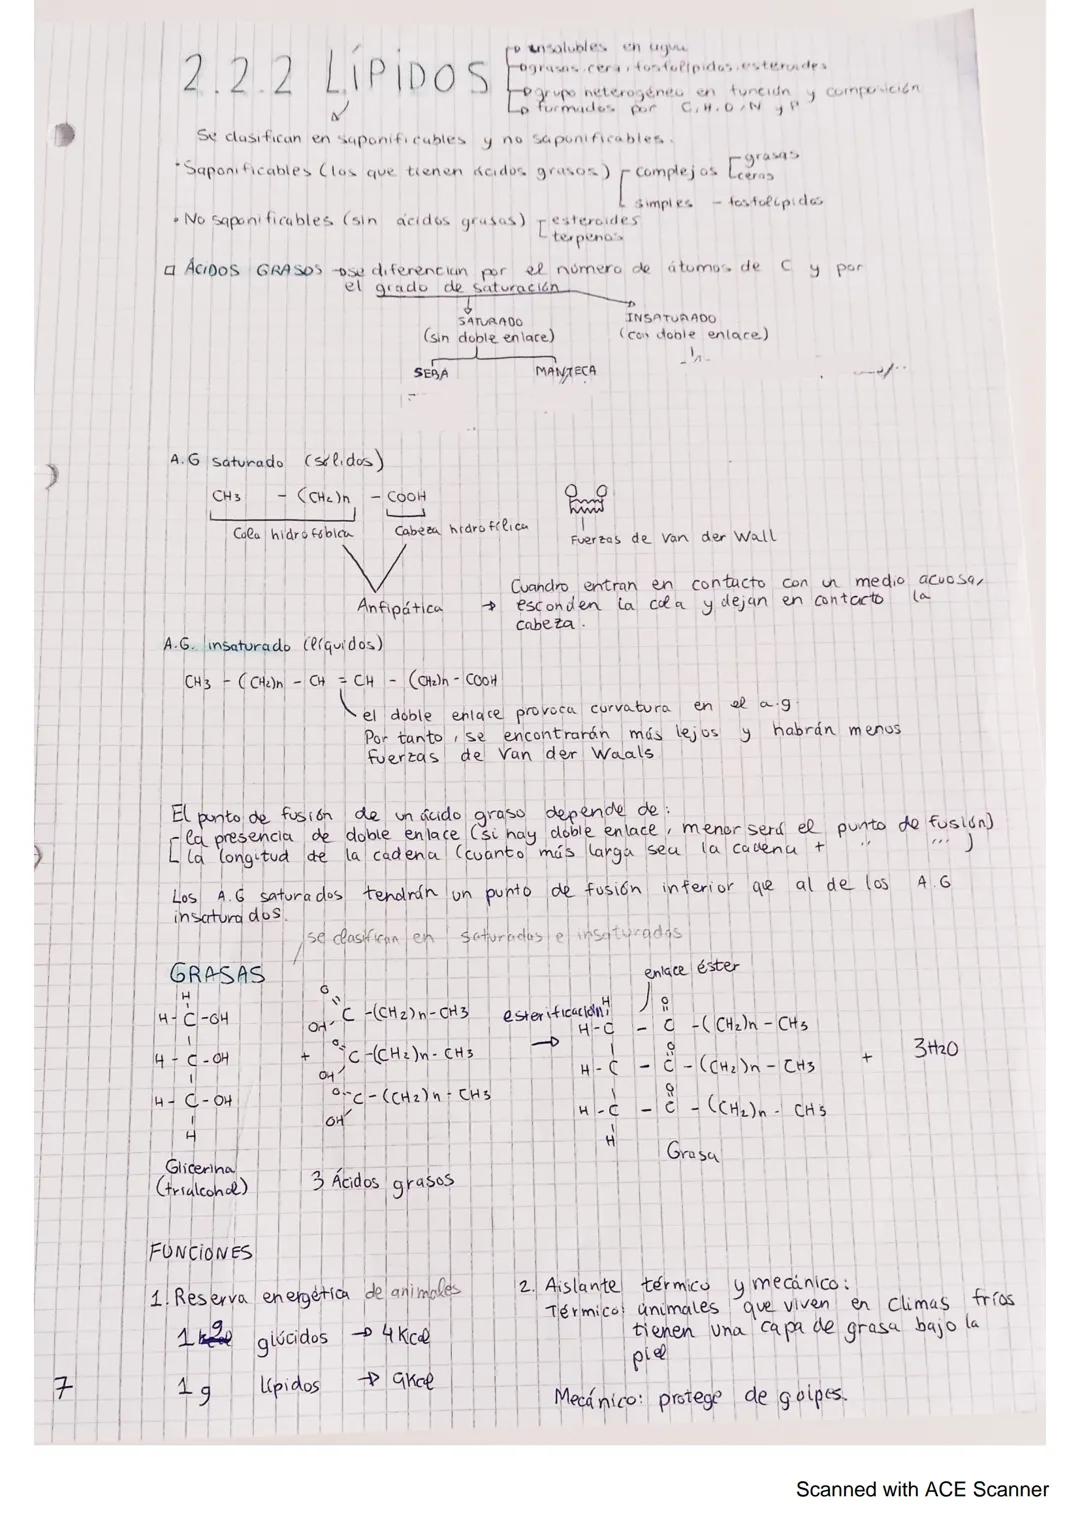 2.2.2 LÍPIDOS
insolubles en agua
grasas, cera, fosfolípidos, esteroides
grupo heterogéneo en función y composición
formados por C, H, O, N y P
Se clasifican en saponificables y no saponificables.
• Saponificables (los que tienen ácidos grasos) complejos grasas
ceras
simples - fosfolípidos
• No saponificables (sin ácidos grasos) esteroides
terpenos
ÁCIDOS GRASOS → se diferencian por el número de átomos de C y por
el grado de saturación
SATURADO
(sin doble enlace)
INSATURADO
(con doble enlace)
SEBA MANTECA
A.G saturado (sólidos)
CH3 - (CH2)n - COOH
Cola hidrofóbica Cabeza hidrofílica
Fuerzas de Van der Wall
Anfipática → Cuandro entran en contacto con un medio acuosa,
esconden la cola y dejan en contacto la
cabeza.
A.G. insaturado (líquidos)
CH3 - (CH2)n - CH = CH - (CH2)n - COOH
el doble enlace provoca curvatura en el a.g.
Por tanto, se encontrarán más lejos y habrán menos
fuerzas de Van der Waals
El punto de fusión de un ácido graso depende de:
- la presencia de doble enlace (si hay doble enlace, menor será el punto de fusión)
la longitud de la cadena (cuanto más larga sea la cadena + " ... )
Los A.G saturados tendrán un punto de fusión inferior que al de los A.G
insaturados.
se clasifican en saturadas e insaturadas
GRASAS
enlace éster
H
H - C - OH
H - C - OH
H - C - OH
H
+
O
C - (CH2)n - CH3
OH
O
C - (CH2)n - CH3
OH
O
C - (CH2)n - CH3
OH
esterificación
→
H O
H - C - C - (CH2)n - CH3
O
H - C - C - (CH2)n - CH3
O
H - C - C - (CH2)n - CH3
H
+ 3H2O
Glicerina
(trialcohol)
3 Ácidos grasos
Grasa
FUNCIONES
1. Reserva energética de animales
1 g glúcidos → 4 Kcal
1 g lípidos → 9 Kcal
2. Aislante térmico y mecánico:
Térmico: animales que viven en climas fríos
tienen una capa de grasa bajo la
piel
Mecánico: protege de golpes.
7
Scanned with ACE Scanner